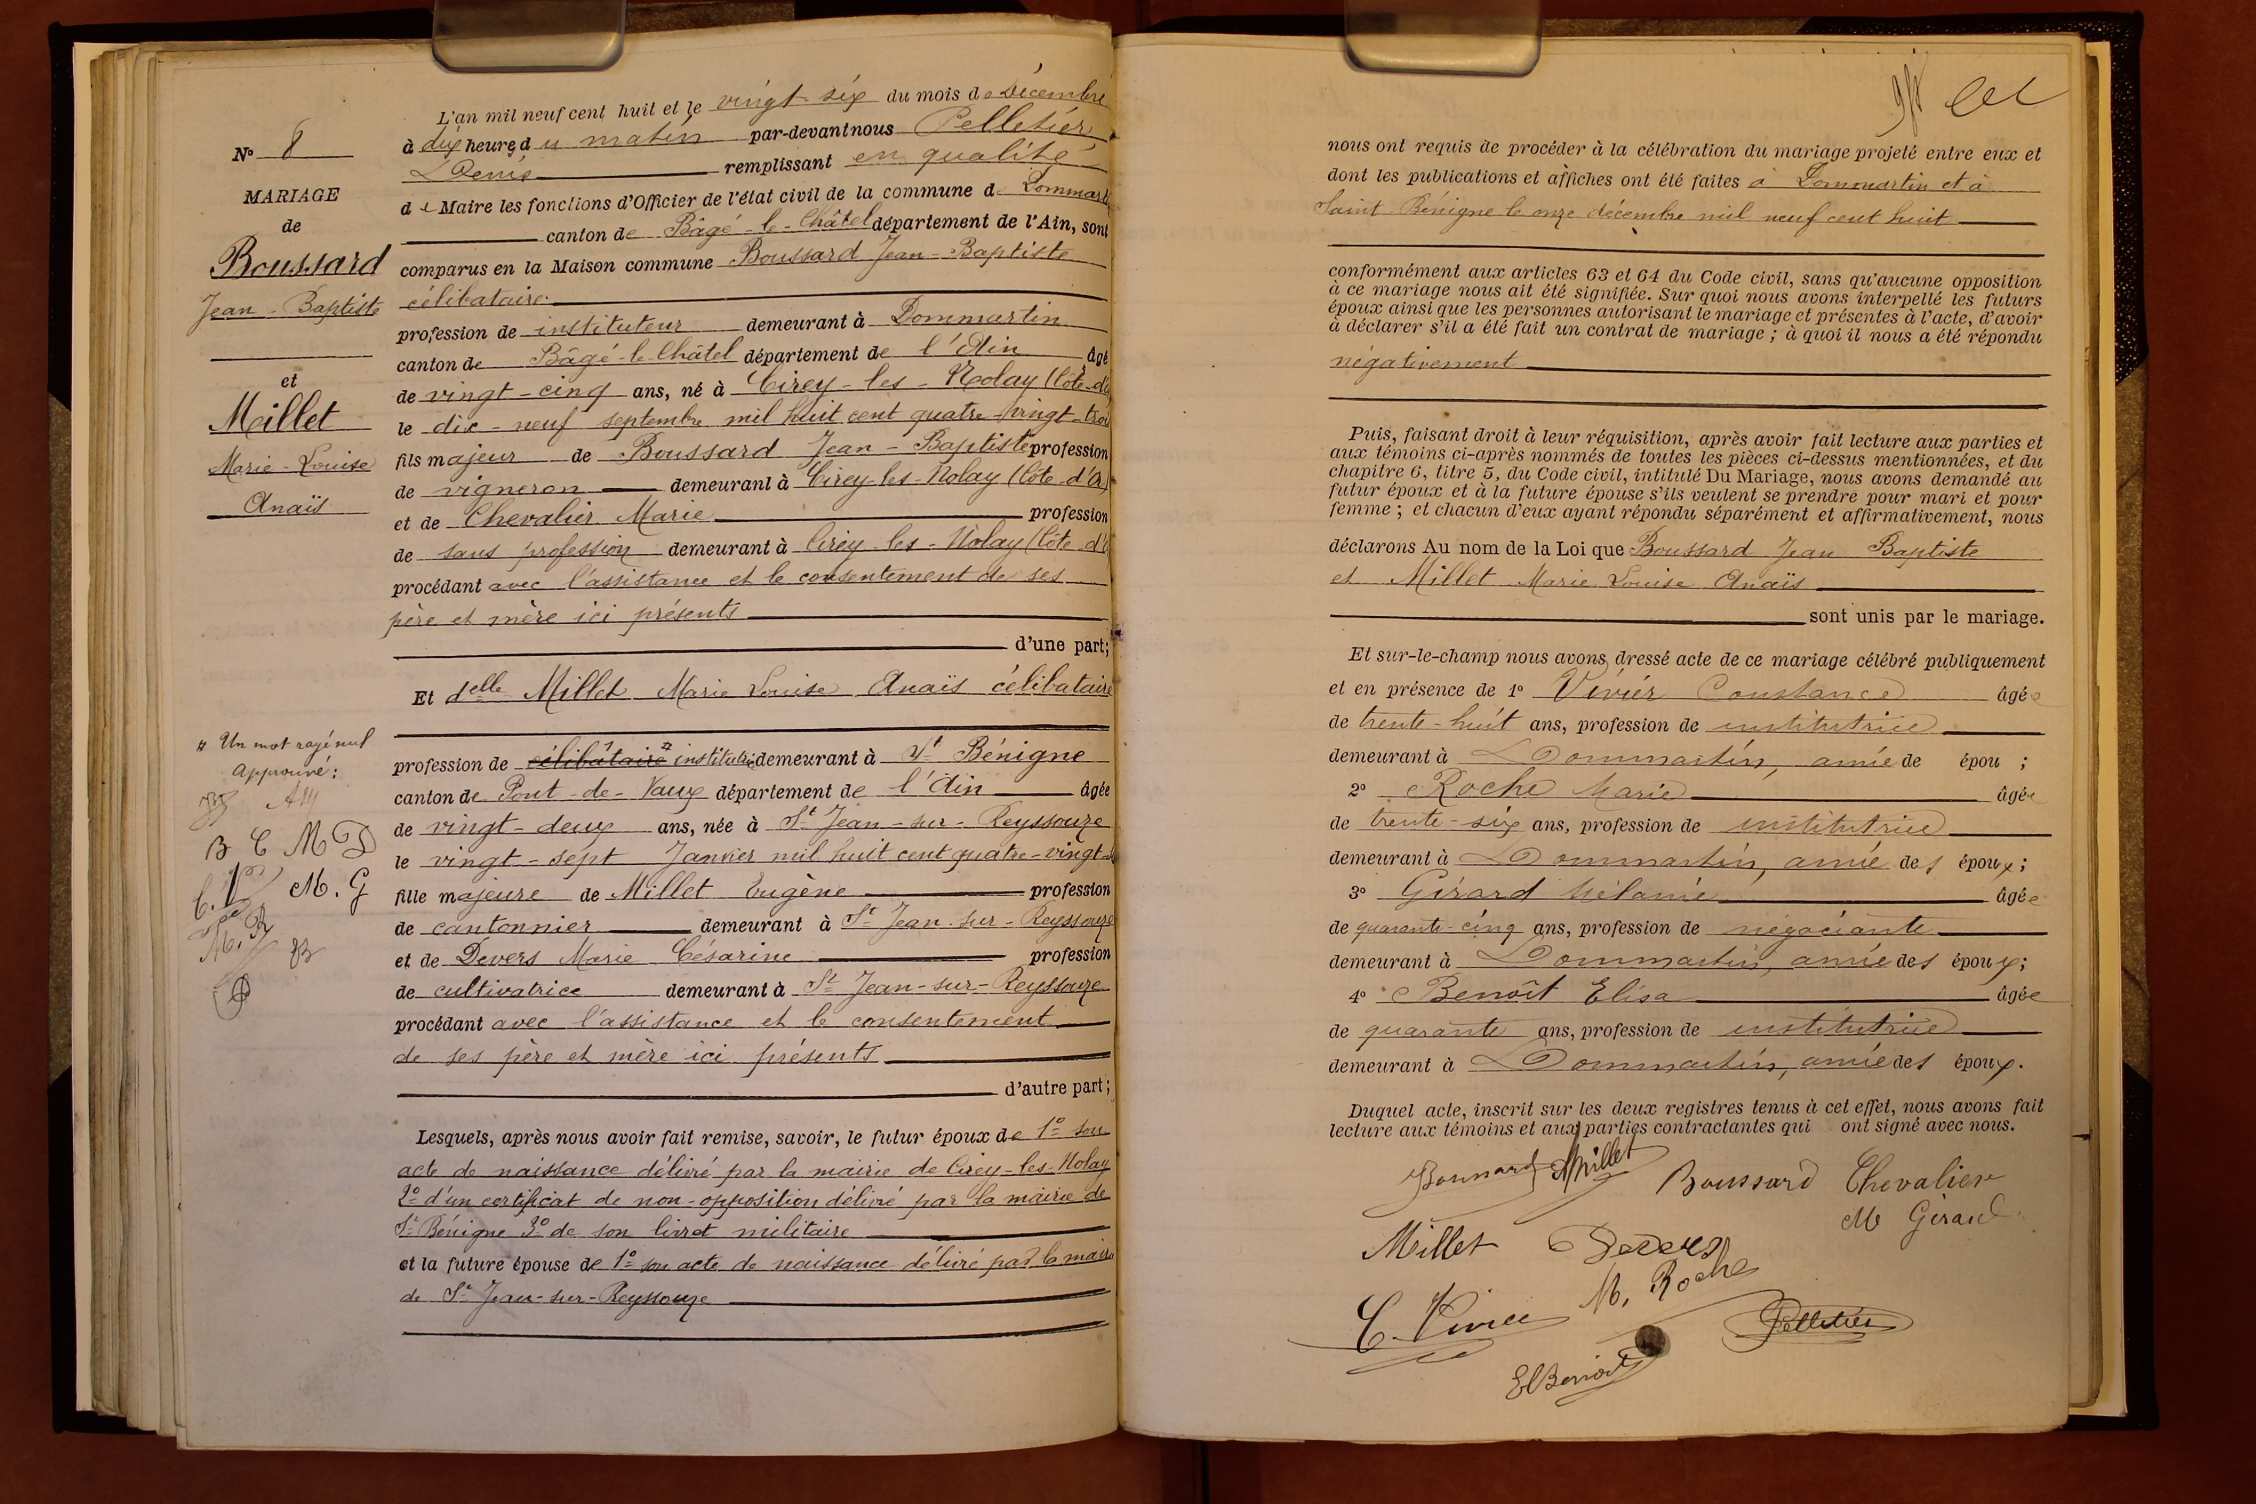 L'an mil neuf cent huit et le vingt-six du mois de Décembre
à dix heures du matin par-devant nous Pelletier
Denis remplissant en qualité
de Maire les fonctions d'Officier de l'état civil de la commune de Dommartin
canton de Bâgé-le-Châtel département de l'Ain, sont
comparus en la Maison commune Boussard Jean-Baptiste
célibataire
profession de instituteur demeurant à Dommartin
canton de Bâgé-le-Châtel département de l'Ain âgé
de vingt-cinq ans, né à Cirey-les-Nolay (Côte-d'Or)
le dix-neuf septembre mil huit cent quatre-vingt-trois
fils majeur de Boussard Jean-Baptiste profession
de vigneron demeurant à Cirey-les-Nolay (Côte-d'Or)
et de Chevalier Marie profession
de sans profession demeurant à Cirey-les-Nolay (Côte-d'Or)
procédant avec l'assistance et le consentement de ses
père et mère ici présents
d'une part;
Et delle Millet Marie Louise Anaïs célibataire
profession de célibataire institutrice demeurant à St Bénigne
canton de Pont-de-Vaux département de l'Ain âgée
de vingt-deux ans, née à St Jean-sur-Reyssouze
le vingt-sept Janvier mil huit cent quatre-vingt-
fille majeure de Millet Eugène profession
de cantonnier demeurant à St Jean-sur-Reyssouze
et de Devers Marie Césarine profession
de cultivatrice demeurant à St Jean-sur-Reyssouze
procédant avec l'assistance et le consentement
de ses père et mère ici présents
d'autre part;
Lesquels, après nous avoir fait remise, savoir, le futur époux de 1° son
acte de naissance délivré par la mairie de Cirey-les-Nolay
2° d'un certificat de non-opposition délivré par la mairie de
St Bénigne 3° de son livret militaire
et la future épouse de 1° son acte de naissance délivré par la mairie
de St Jean-sur-Reyssouze
N° 8
MARIAGE
de
Boussard
Jean-Baptiste
et
Millet
Marie-Louise
Anaïs
# Un mot rayé nul
Approuvé:
AM
B C M D
C. V M. G
M. R
nous ont requis de procéder à la célébration du mariage projeté entre eux et
dont les publications et affiches ont été faites à Dommartin et à
Saint-Bénigne le onze décembre mil neuf cent huit
conformément aux articles 63 et 64 du Code civil, sans qu'aucune opposition
à ce mariage nous ait été signifiée. Sur quoi nous avons interpellé les futurs
époux ainsi que les personnes autorisant le mariage et présentes à l'acte, d'avoir
à déclarer s'il a été fait un contrat de mariage; à quoi il nous a été répondu
négativement
Puis, faisant droit à leur réquisition, après avoir fait lecture aux parties et
aux témoins ci-après nommés de toutes les pièces ci-dessus mentionnées, et du
chapitre 6, titre 5, du Code civil, intitulé Du Mariage, nous avons demandé au
futur époux et à la future épouse s'ils veulent se prendre pour mari et pour
femme; et chacun d'eux ayant répondu séparément et affirmativement, nous
déclarons Au nom de la Loi que Boussard Jean Baptiste
et Millet Marie Louise Anaïs
sont unis par le mariage.
Et sur-le-champ nous avons dressé acte de ce mariage célébré publiquement
et en présence de 1° Vivier Constance âgée
de trente-huit ans, profession de institutrice
demeurant à Dommartin, amie de épou ;
2° Roche Marie âgée
de trente-six ans, profession de institutrice
demeurant à Dommartin, amie des époux;
3° Girard Mélanie âgée
de quarante-cinq ans, profession de négociante
demeurant à Dommartin, amie des époux;
4° Benoît Elisa âgée
de quarante ans, profession de institutrice
demeurant à Dommartin, amie des époux.
Duquel acte, inscrit sur les deux registres tenus à cet effet, nous avons fait
lecture aux témoins et aux parties contractantes qui ont signé avec nous.
Boussard AMillet Boussard Chevalier
M Girard
Millet Devers
C. Vivier M. Roche
Pelletier
E Benoit